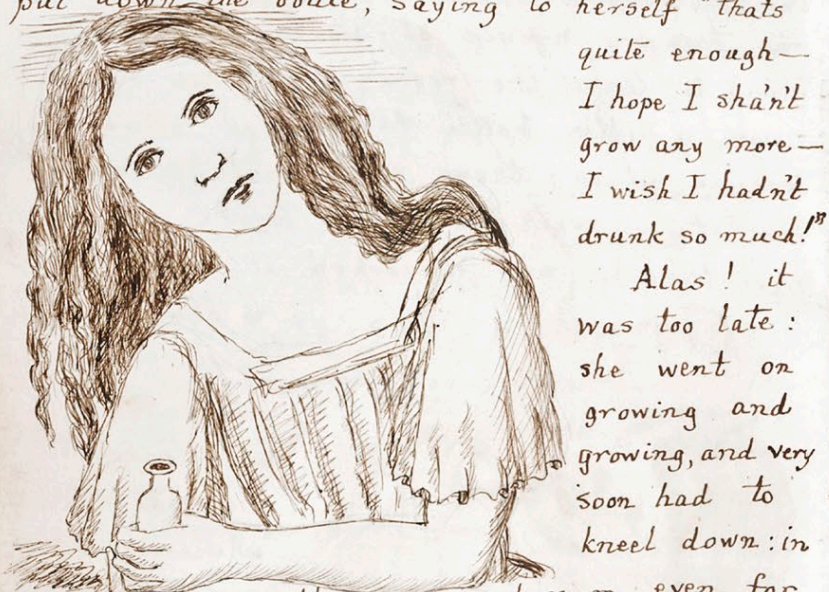 put down the bottle, saying to herself "thats
quite enough—
I hope I sha'n't
grow any more—
I wish I hadn't
drunk so much!"
Alas! it
was too late:
she went on
growing and
growing, and very
soon had to
kneel down: in
even for